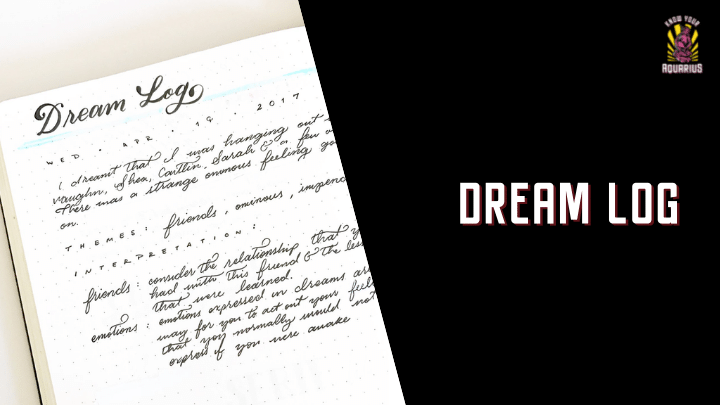 Dream Log
WED. APR. 19. 2017
I dreamt that I was hanging out
vaughn, Shea, Caitlin, Sarah & a few
There was a strange ominous feeling
on.
THEMES: friends, ominous,
INTERPRETATION:
friends: consider the relationship that
had with this friend & the
that were learned.
emotions: emotions expressed in dreams
way for you to act out your
that you normally would not
express if you were awake
KNOW YOUR
AQUARIUS
DREAM LOG